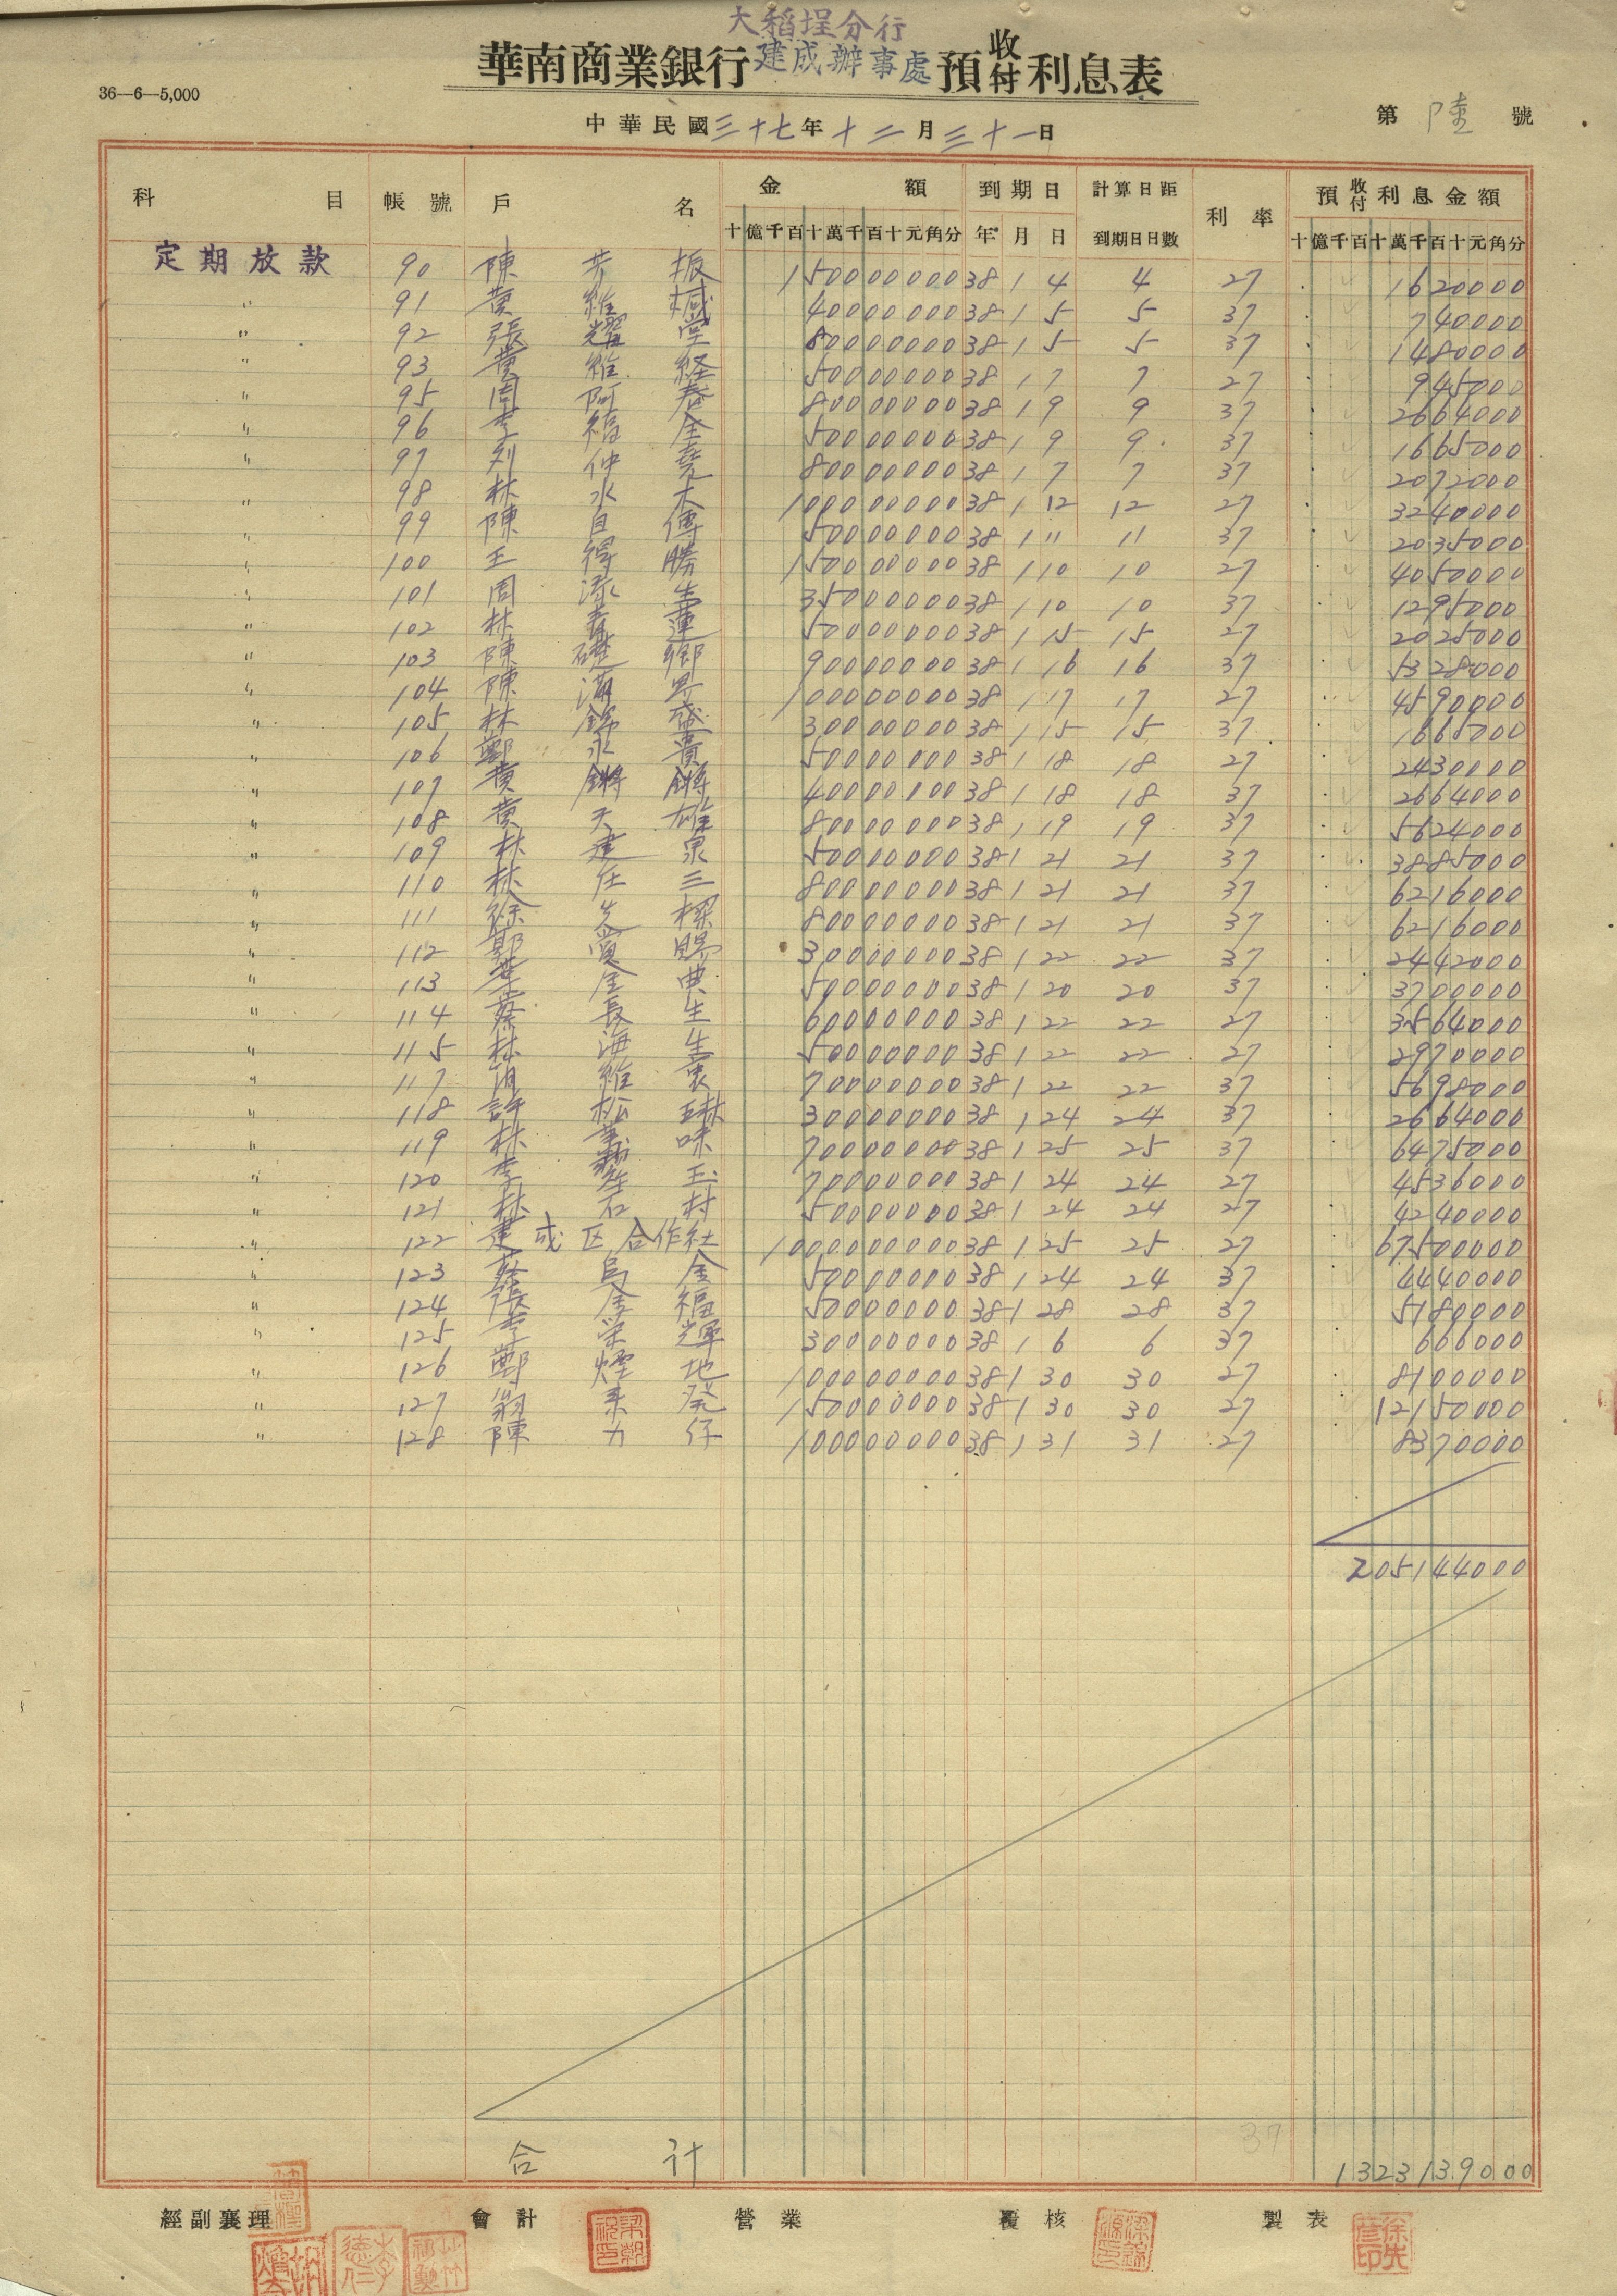 大稻埕分行
華南商業銀行建成辦事處預收付利息表
36—6—5,000
中華民國三十七年十二月三十一日
第陸號
科目 帳號 戶名 金額 到期日 計算日距到期日日數 利率 預收付利息金額
十億千百十萬千百十元角分 年 月 日 十億千百十萬千百十元角分
定期放款 90 陳 振 150000000 38 1 4 4 27 1620000
〃 91 黃維 40000000 38 1 5 5 37 740000
〃 92 張耀堂 80000000 38 1 5 5 37 1480000
〃 93 黃維経 50000000 38 1 7 7 27 945000
〃 95 周阿春 80000000 38 1 9 9 37 2664000
〃 96 李福全 50000000 38 1 9 9 37 1665000
〃 97 刘仲堯 80000000 38 1 7 7 37 2072000
〃 98 林水木 100000000 38 1 12 12 27 3240000
〃 99 陳自傳 50000000 38 1 11 11 37 2035000
〃 100 王得勝 150000000 38 1 10 10 27 4050000
〃 101 周 生 35000000 38 1 10 10 37 1295000
〃 102 林 蓮 50000000 38 1 15 15 27 2025000
〃 103 陳礎鄉 90000000 38 1 16 16 37 5328000
〃 104 陳 100000000 38 1 17 17 27 4590000
〃 105 林錦盛 30000000 38 1 15 15 37 1665000
〃 106 鄭永貴 50000000 38 1 18 18 27 2430000
〃 107 黃鏘鏘 40000000 38 1 18 18 37 2664000
〃 108 黃天雄 80000000 38 1 19 19 37 5624000
〃 109 林建泉 50000000 38 1 21 21 37 3885000
〃 110 林任三 80000000 38 1 21 21 37 6216000
〃 111 徐先樑 80000000 38 1 21 21 37 6216000
〃 112 郭愛賜 30000000 38 1 22 22 37 2442000
〃 113 葉金典 50000000 38 1 20 20 37 3700000
〃 114 蔡長生 60000000 38 1 22 22 27 3564000
〃 115 林海生 50000000 38 1 22 22 27 2970000
〃 117 維 70000000 38 1 22 22 37 5698000
〃 118 許松琳 30000000 38 1 24 24 37 2664000
〃 119 林 味 70000000 38 1 25 25 37 6475000
〃 120 李 玉 70000000 38 1 24 24 27 4536000
〃 121 林石村 50000000 38 1 24 24 27 4240000
〃 122 建成区合作社 1000000000 38 1 25 25 27 67500000
〃 123 蔡烏金 50000000 38 1 24 24 37 4440000
〃 124 張金福 50000000 38 1 28 28 37 5180000
〃 125 李栄輝 30000000 38 1 6 6 37 666000
〃 126 鄭煙地 100000000 38 1 30 30 27 8100000
〃 127 翁来發 150000000 38 1 30 30 27 12150000
〃 128 陳力仔 100000000 38 1 31 31 27 8370000
205144000
37
合計 1323139000
經副襄理 會計 營業 覆核 製表